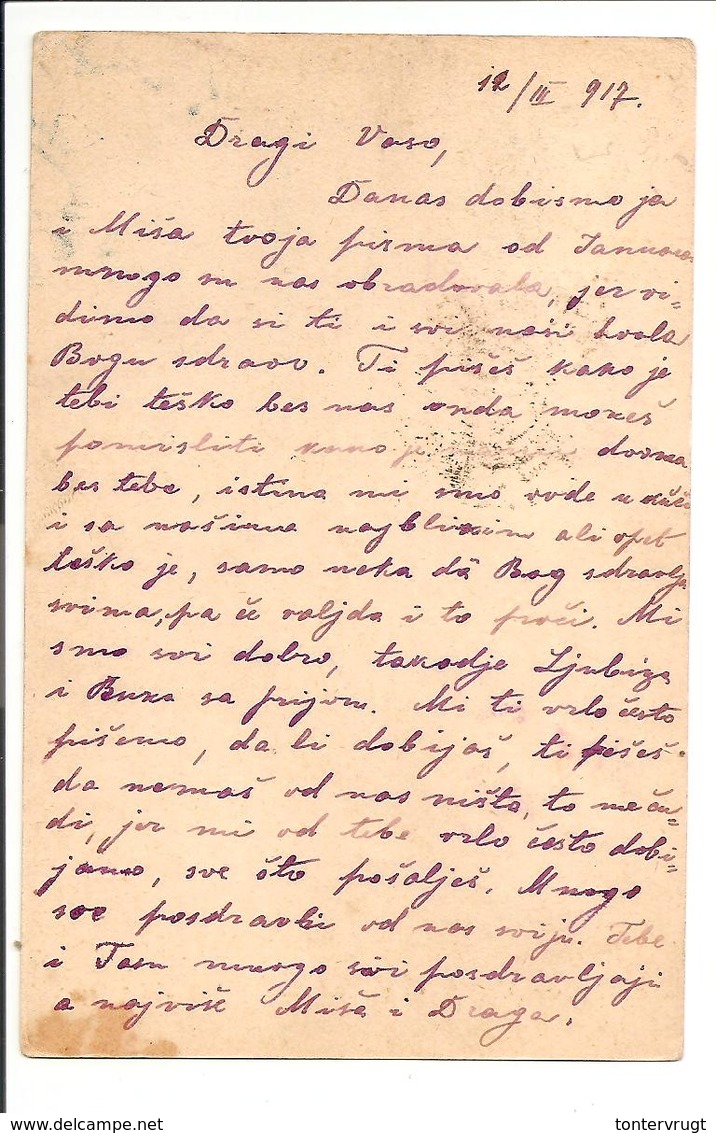 12/III 917.
Dragi Vaso,
Danas dobismo ja
i Miša tvoja pisma od Januara
mnogo su nas obradovala, jer vi-
dimo da si ti i svi naši hvala
Bogu sdravo. Ti pišeš kako je
tebi teško bes nas onda možeš
pomisliti kako je doma
bes tebe, istina mi smo ovde u kući
i sa našima najbližim ali opet
teško je, samo neka dâ Bog sdravlja
svima, pa će valjda i to proći. Mi
smo svi dobro, takodje Ljubiza
i sa prijom. Mi ti vrlo često
pišemo, da li dobijaš, ti pišeš
da nemaš od nas ništa, to me ču-
di, jer mi od tebe vrlo često dobi-
jamo, sve što pošalješ. Mnogo
sve posdravli od nas sviju. Tebe
i Tasu mnogo svi posdravljaji
a najviše Miša i Draga.
delcampe.net
tontervrugt